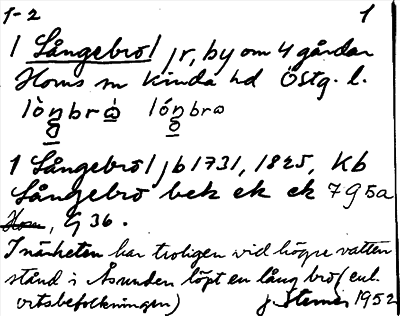 1-2 1
1 Långebro / jr, by om 4 gårdar
Horns sn Kinda hd Östg. l.
1 Långebro / jb 1731, 1825, Kb
Långebro bek ek ek 795a
Horn, G 36.
I närheten har troligen vid högre vatten
stånd i Åsunden löpt en lång bro (enl.
ortsbefolkningen) J Sterner 1952